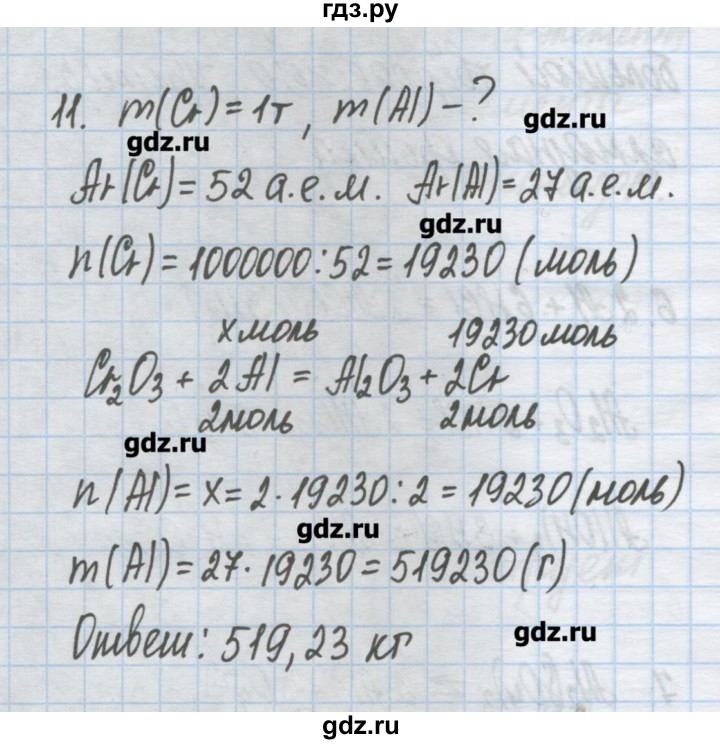 гдз.ру
11. m(Cr) = 1т, m(Al) - ?
gdz.ru
gdz.ru
Ar(Cr) = 52 а.е.м. Ar(Al) = 27 а.е.м.
gdz.ru
n(Cr) = 1000000 : 52 = 19230 (моль)
x моль 19230 моль
Cr₂O₃ + 2Al = Al₂O₃ + 2Cr
2моль 2моль
gdz.ru
n(Al) = x = 2 · 19230 : 2 = 19230 (моль)
gdz.ru
m(Al) = 27 · 19230 = 519230 (г)
Ответ: 519,23 кг
gdz.ru
gdz.ru